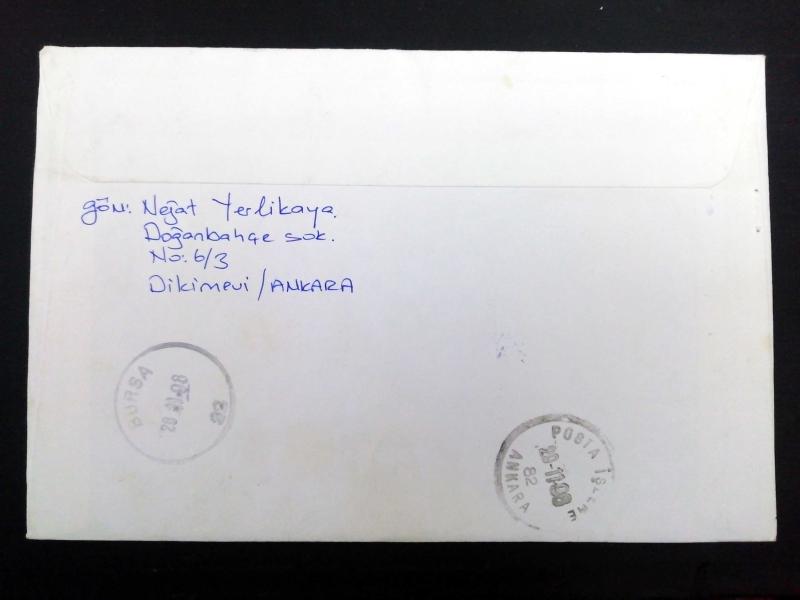 gön: Nejat Yerlikaya.
Doğanbahçe sok.
No: 6/3
Dikimevi/ANKARA
BURSA
POSTA İŞLEME
28-11-98
82
ANKARA